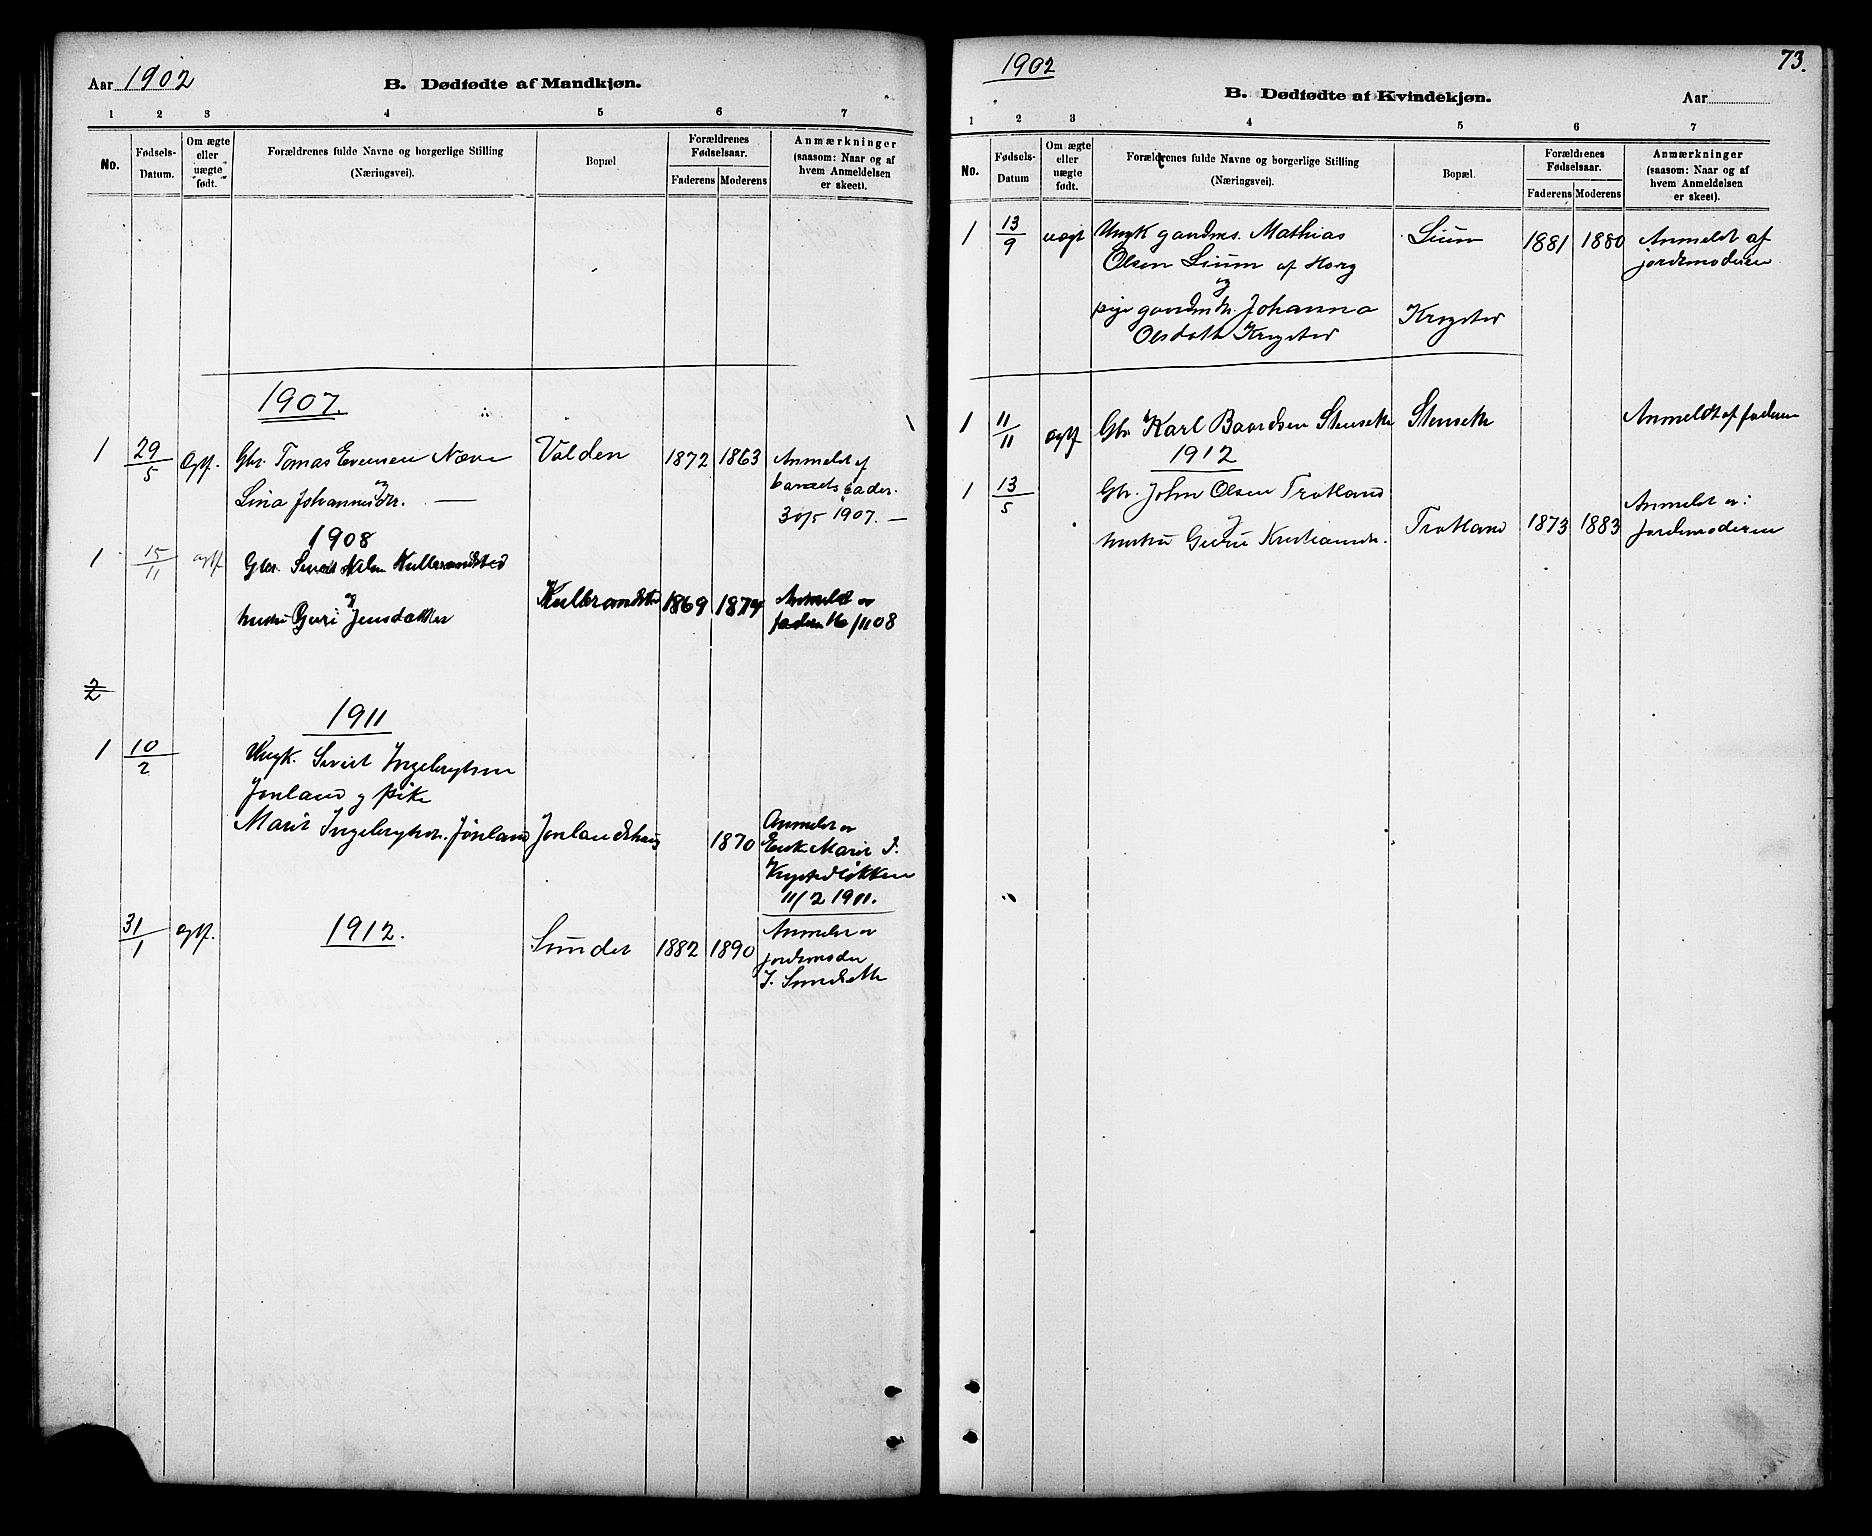 Aar 1902
B. Dødfødte af Mandkjøn.
1 2 3 4 5 6 7
No.
Fødsels-
Datum.
Om ægte
eller
uægte
født.
Forældrenes fulde Navne og borgerlige Stilling
(Næringsvei).
Bopæl
Forældrenes
Fødselsaar.
Faderens Moderens
Anmærkninger
(saasom: Naar og af
hvem Anmeldelsen
er skeet).
1907.
1 29/5 ægtf. Gbr. Tomas Evensen Næve Volden 1872 1863 Anmeldt af
og barnets fader.
Lina Johannesdtr. — 30/5 1907. —
1908
1 15/11 ægtf Gbr. Sivert
og
hustru Guri Jensdatter 1869 Anmeldt av
faderen 16/11 08
2
1911
1 10/2 Ungk. Sivert Ingebrigtsen
Jonland og pike
Marit Ingebrigtsdr. Jonland Jonlandshaug 1870 Anmeldt av
Enke Marit I.
Krygstadløkken
11/2 1911.
31/1 ægtf. 1912. Sundet 1882 1890 Anmeldt av
jordmoder
I.
1902
73.
B. Dødfødte af Kvindekjøn.
Aar
1 2 3 4 5 6 7
No.
Fødsels-
Datum
Om ægte
eller
uægte
født.
Forældrenes fulde Navne og borgerlige Stilling
(Næringsvei).
Bopæl.
Forældrenes
Fødselsaar.
Faderens Moderens
Anmærkninger
(saasom: Naar og af
hvem Anmeldelsen
er skeet).
1 13/9 uægt Ungk gaardms. Mathias Lium 1881 1880 Anmeldt af
Olsen Lium af Horg jordemoderen
og
pige gaardmdtr. Johanna Krogstad
Olsdatter Krogstad
1 11/11 ægtf Gbr Karl Baardsen Stenseth Stenseth Anmeldt af faderen
1912
1 13/5 Gbr. John Olsen Trotland
og Anmeldt av:
hustru Gurine Kristiansdr. Trotland 1873 1883 jordemoderen